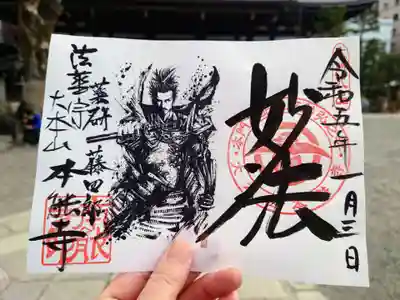 令和五年一月三日
妙法
薬研藤四郎
法華宗
大本山 本能寺